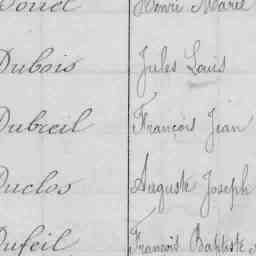 Henri Marie
Dubois Jules Louis
Dubreil François Jean
Duclos Auguste Joseph
Dufeil François Baptiste